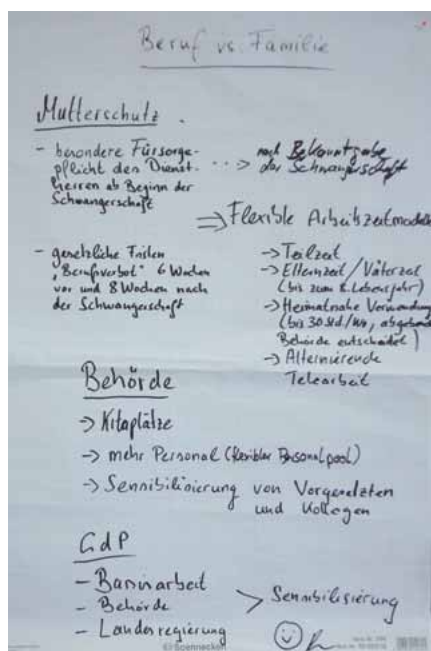 Beruf vs. Familie
Mutterschutz
- besondere Fürsorge-
pflicht des Dienst-
herren ab Beginn der
Schwangerschaft
···> nach Bekanntgabe
der Schwangerschaft
=> Flexible Arbeitszeitmodelle
- gesetzliche Fristen
"Berufsverbot" 6 Wochen
vor und 8 Wochen nach
der Schwangerschaft
-> Teilzeit
-> Elternzeit / Väterzeit
(bis zum 8. Lebensjahr)
-> Heimatnahe Verwendung
(bis 30 Std./Wo, abgebende
Behörde entscheidet)
-> Alternierende
Telearbeit
Behörde
-> Kitaplätze
-> mehr Personal (flexibler Personalpool)
-> Sensibilisierung von Vorgesetzten
und Kollegen
GdP
- Basisarbeit
- Behörde
- Landesregierung
> Sensibilisierung
Soennecken